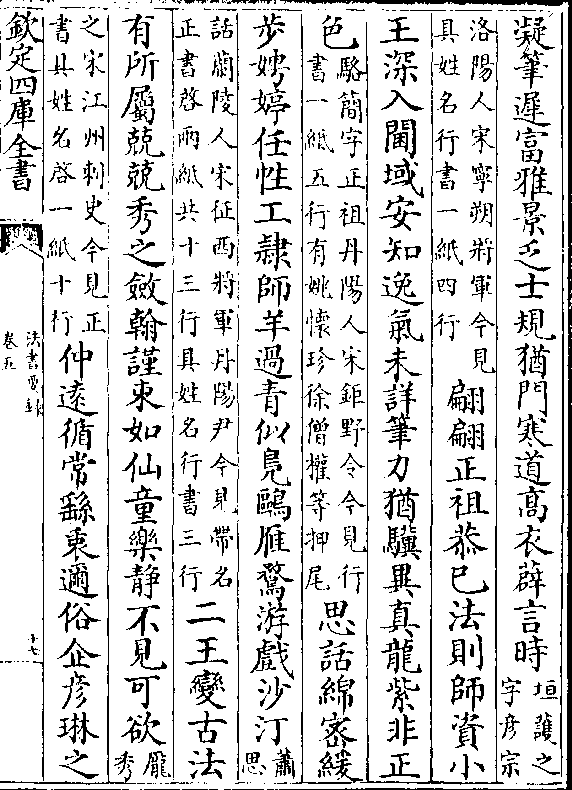 凝筆遲富雅景乏士規猶門寒道高衣薜言時垣護之
字彥宗
洛陽人宋寧朔將軍今見
具姓名行書一紙四行
翩翩正祖恭已法則師資小
王深入閫域安知逸氣未詳筆力猶驥異真龍紫非正
色駱簡字正祖丹陽人宋鉅野令今見行
書一紙五行有姚懷珍徐僧權等押尾
思話綿密緩
步娉婷任性工隷師羊過青似鳧鷗雁鶩游戲沙汀蕭
思
話蘭陵人宋征西將軍丹陽尹今見帶名
正書啓兩紙共十三行具姓名行書三行
二王變古法
有所屬兢兢秀之斂翰謹束如仙童樂靜不見可欲龎
秀
之宋江州刺史今見正
書具姓名啓一紙十行
仲遠循常繇乗邇俗企彥琳之
欽定四庫全書
法書要錄
卷五
十七